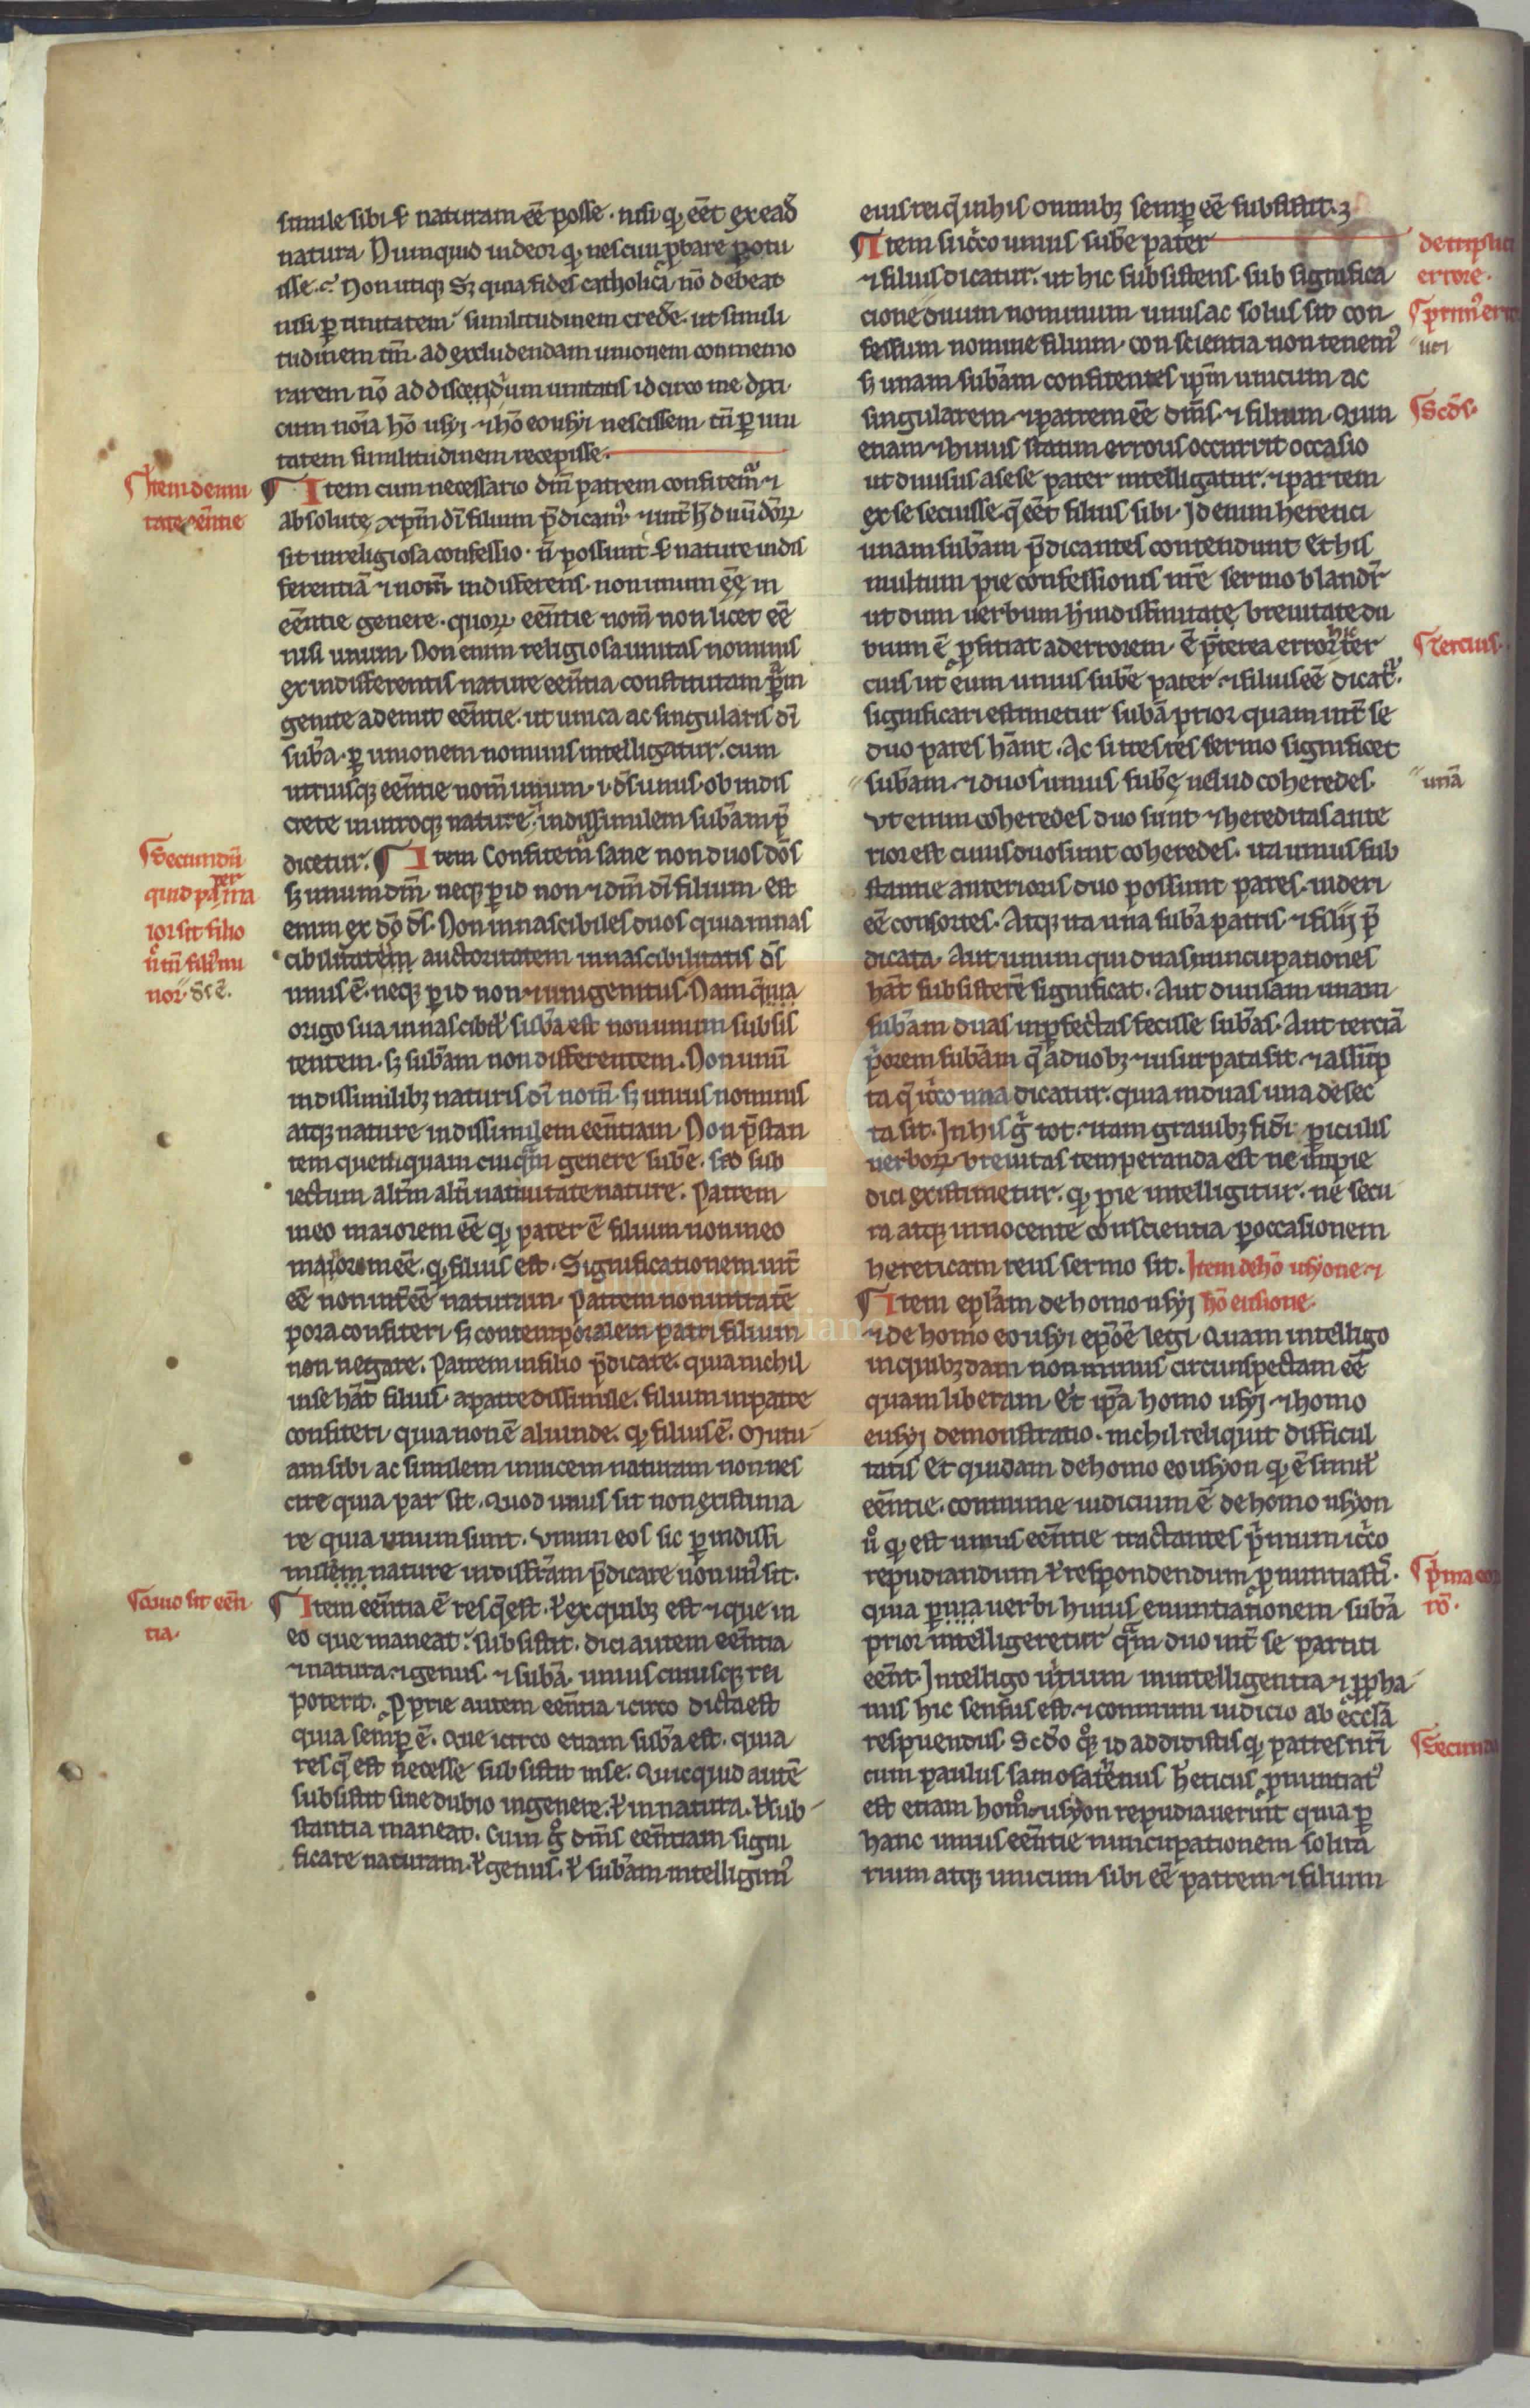 simile sibi ẜ naturam eē posse · nisi qͥ eēt ex eaď
natura Nunquid uideor qͥ nesciui ꝓbare potu
isse · Non utiqꝫ Sꝫ quia fides catholica nō debeat
nisi ꝑ unitatem similitudinem credͤe · ut simili
tudinem tm̄ · ad excludendam unionem commemo
rarem nō ad discendͥum unitatis idcirco me dixi ·
cum nōia hō usyi ⁊ hō eousyi nescissem tn̄ ꝑ uni
tatem similitudinem recepisse ·
Item de uni
tate eēntie
¶ Item cum necessario dm̄ patrem confitemͬ ⁊
absolute xpm̄ dī filium p̄dicamꝰ · ⁊ int̄ h̄ duūdōꝝ
sit irreligiosa confessio · n̄ possunt ẜ nature indif
ferentiā ⁊ nom̄ indifferens · non unum eē in
eēntie genere · quoꝝ eēntie nom̄ non licet eē
nisi unum Non enim religiosa unitas nominis
ex indifferentis nature eēntia constitutam pͣm
genite ademit eēntie · ut unica ac singularis dī
sub̄a · ꝑ unionem nominis intelligatur · cum
utriusqꝫ eēntie nom̄ unum · ı · ds̄ unus · ob indis
crete in utroqꝫ nature indissimilem sub̄am p̄
Secundū
quid pater ma
ior sit filio
n̄ tn̄ filiꝰ mi
nor ds̄ ē ·
dicetur · ¶ Item Confitemͬ sane non duos dōs
sꝫ unum dm̄ neqꝫ ꝑ id non ⁊ dm̄ dī filium est
enim ex dō ds̄ · Non innascibiles duos quia innas
cibilitatem auctoritatem innascibilitatis ds̄
unus ē · neqꝫ ꝑ id non ⁊ unigenitus · Nam q̄ uia
origo sua innascibił sub̄a est non unum subsis
tentem · sꝫ sub̄am non differentem · Non unū
indissimilibꝫ naturis dī nom̄ · sꝫ unius nominis
atqꝫ nature indissimilem eēntiam · Non p̄stan
tem quemquam cuiqͣm genere sub̄e · sed sub
iectum altm̄ altī natiuitate nature · Patrem
in eo maiorem eē qͥ pater ē filium non in eo
maiorem eē · qͥ filius est · Significationem int̄
eē non int̄ eē naturam · Patrem non unitatē
pora confiteri sꝫ contemporalem patri filium
non negare · Patrem in filio p̄dicare · quia nichil
in se hāt filius · a patre dissimile · filium in patre
confiteri quia non ē aliunde · qͥ filius ē · Mutu
am sibi ac similem inuicem naturam non nes
cire quia par sit · Quod unus sit non existima
re quia unum sunt · Vnum eos sic ꝑ indissi
milem nature indiffr̄am p̄dicare non unꝰ sit ·
Quid sit eēn
tia ·
¶ Item eēntia ē res q̄ est · ł ex quibꝫ est ⁊ que in
eo que maneat · subsistit · dici autem eēntia
⁊ natura ⁊ genus · ⁊ sub̄a · unius cuiusqꝫ rei
poterit · Ꝓprie autem eēntia icirco dicta est
quia semꝑ ē · Que icirco etiam sub̄a est · quia
res q̄ est necesse subsistit in se · Quicquid autē
subsistit sine dubio in genere · ł in natura · ł sub
stantia maneat · Cum gͦ dm̄s eēntiam signi
ficare naturam · ł genus · ł sub̄am intelligimꝰ
eius rei q̄ in his omnibꝫ semꝑ eē subsistat ·
¶ Item si icͨco unius sub̄e pater
de triplici
errore ·
⁊ filius dicatur · ut hic subsistens · sub significa
cione duum nominum unus ac solus sit con
primꝰ erro
fessum nomine filium · conscientia non tenemꝰ
sꝫ unam sub̄am confitentes ip̄m unicum ac
singularem ⁊ patrem eē dm̄s ⁊ filium · Quin
Scd̄s ·
etiam ⁊ huius statim erroris occurrit occasio
ut diuisus a se se pater intelligatur · ⁊ partem
ex se secuisse q̄ eēt filius sibi · Id enim heretici
unam sub̄am p̄dicantes contendunt Et his
multum pie confessionis nr̄e sermo blandͬ
ut dum uerbum h̄ indiffinitate breuitate du
bium ē ꝓficiat ad errorem · ē p̄terea error hic ter
Tercius ·
cius ut cͧm unius sub̄e pater · ⁊ filius eē dicatͬ ·
significari estimetur sub̄a prior quam int̄ se
duo pares hānt · Ac si tres res sermo significet
sub̄am · ⁊ duos unius sub̄e uelud coheredes ·
unā
Vt enim coheredes duo sunt ⁊ hereditas ante
rior est cuius duo sunt coheredes · ita unius sub
stantie anterioris duo possunt pares · uideri
eē consortes · Atqꝫ ita una sub̄a patris ⁊ filii p̄
dicata · Aut unum qui duas nuncupationes
hāt subsistere significat · Aut diuisam unam
sub̄am duas inꝑfectas fecisse sub̄as · Aut terciā
pͥorem sub̄am q̄ a duobꝫ ⁊ usurpata sit · ⁊ assūp
ta q̄ icͨco una dicatur · quia in duas una desec
ta sit · In his gͥ tot · tam grauibꝫ fidī ꝑiculis
uerboꝝ breuitas temperanda est ne impie
dici existimetur · qͥ pie intelligitur · ne secu
ra atqꝫ innocente conscientia ꝑ occasionem
hereticam reus sermo sit · Item de hō usyone ⁊
hō eusione ·
¶ Item epl̄am de homo usyi
⁊ de homo eousyi exponē legi Quam intelligo
in quibꝫdam non minus circumspectam eē
quam liberam Et ip̄a homo usyi ⁊ homo
eusyi demonstratio · nichil reliquit difficul
tatis Et quidam de homo eousyon qͥ ē similͬ
eēntie · commune iudicium ē de homo usyon
ū qͥ est unius eēntie tractantes pͥmum icͨco
repudiandum ł respondendum ꝓnuntiastī ·
Pͥma eor
rō ·
quia ꝑ ... uerbi huius enuntiationem sub̄a
prior intelligeretur qͣm duo int̄ se partiti
eēnt · Intelligo uitium in intelligentia ⁊ ꝓpha
nus hic sensus est · ⁊ communi iudicio ab eccl̄a
respuendus · Scd̄o qͦꝫ id addidistis qͥ patres nr̄i
Secunda
cum paulus samosatenus hēticus ꝓnuntiatꝰ
est etiam homͦ usyon repudiauerint quia ꝑ
hanc unius eēntie nuncupationem solita
rium atqꝫ unicum sibi eē patrem ⁊ filium